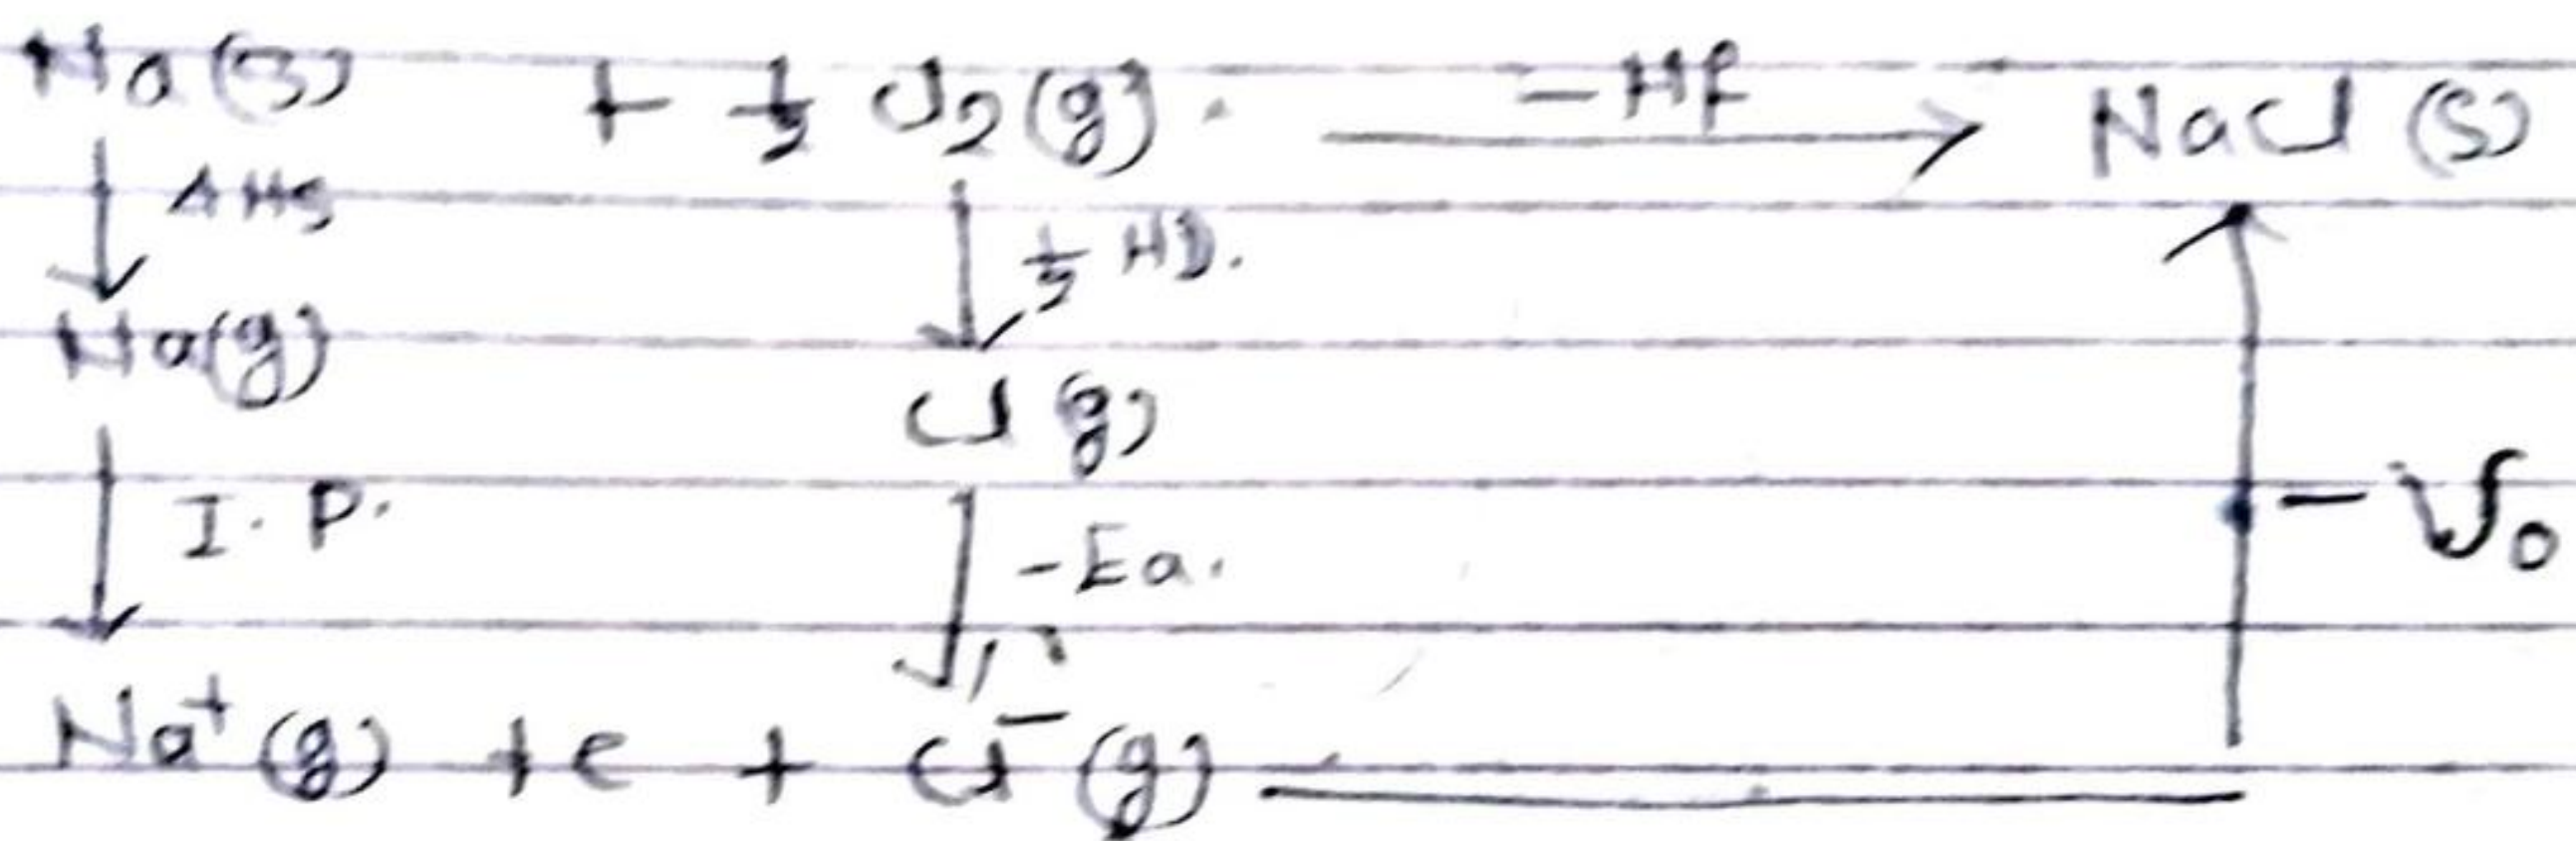 Na(s) + ½ Cl2(g). -Hf NaCl (s)
ΔHs ½ HD.
Na(g) Cl(g)
I. P. -Ea. - U0
Na+ (g) + e + Cl- (g)